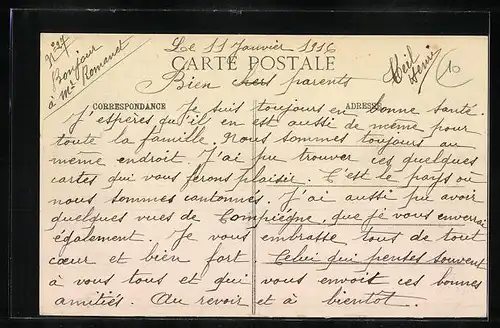 N° 27
Bonjour
à Mr Romanet
Le 11 Janvier 1916
CARTE POSTALE
Bien chers parents
10
CORRESPONDANCE
ADRESSE
Je suis toujours en bonne santé.
J'espères qu'il en est aussi de même pour
toute la famille. Nous sommes toujours au
même endroit. J'ai pu trouver ces quelques
cartes qui vous ferons plaisir. C'est le pays où
nous sommes cantonnés. J'ai aussi pu avoir
quelques vues de Compiègne, que je vous enverrai
également. Je vous embrasse tous de tout
cœur et bien fort Celui qui penses souvent
à vous tous et qui vous envoit ces bonnes
amitiés. Au revoir et à bientôt.